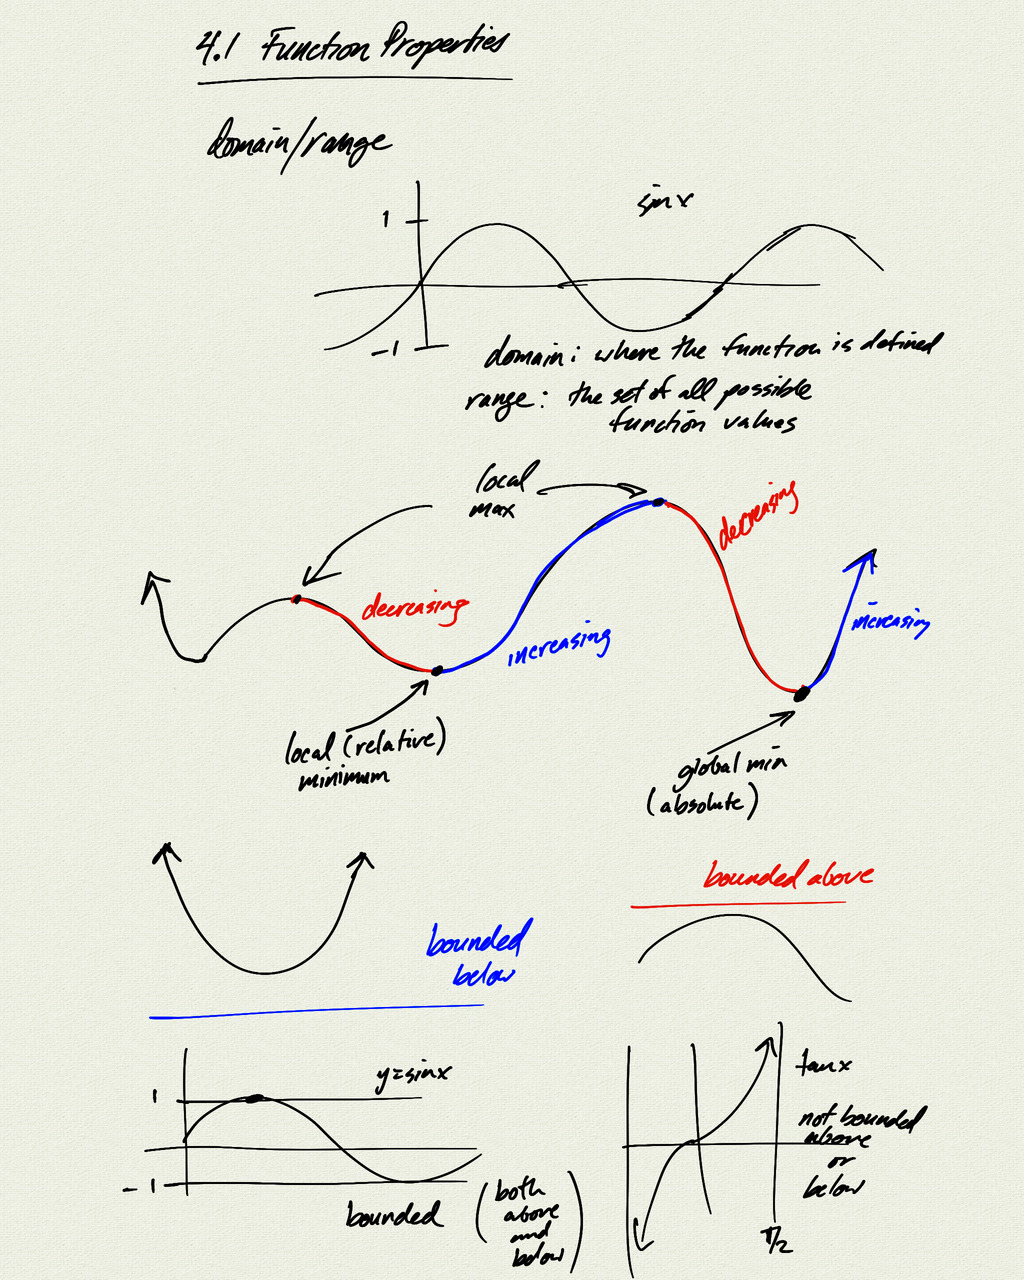 4.1 Function Properties
domain/range
sin x
1
-1
domain: where the function is defined
range: the set of all possible
function values
local
max
decreasing
decreasing
increasing
increasing
local (relative)
minimum
global min
(absolute)
bounded above
bounded
below
y=sinx
1
-1
bounded
(both
above
and
below)
tanx
not bounded
above
or
below
π/2